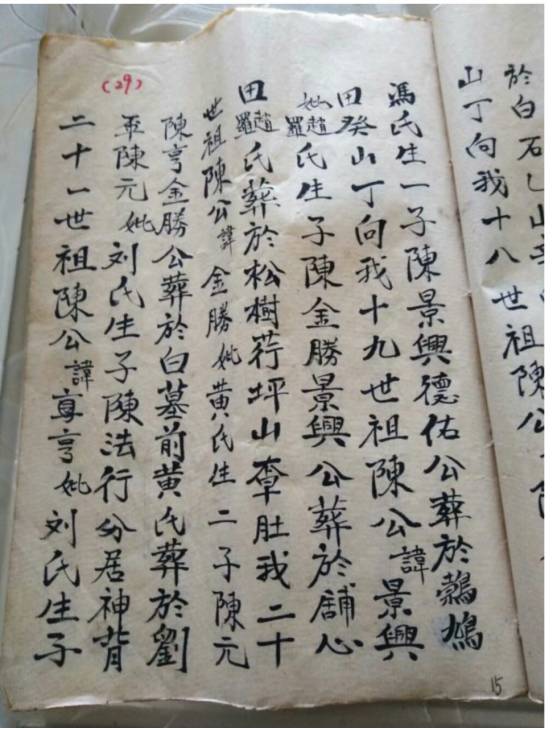 於白石乚山
山丁向我十八世祖陳公
馮氏生一子陳景興德佑公葬於鷓鴣
田癸山丁向我十九世祖陳公諱景興
妣趙羅氏生子陳金勝景興公葬於舖心
田趙羅氏葬於松樹荇坪山肚我二十
世祖陳公諱金勝妣黄氏生二子陳元
陳亨金勝公葬於白墓前黄氏葬於劉
軍陳元妣刘氏生子陳法行分居神背
二十一世祖陳公諱亨妣刘氏生子
(29)
15